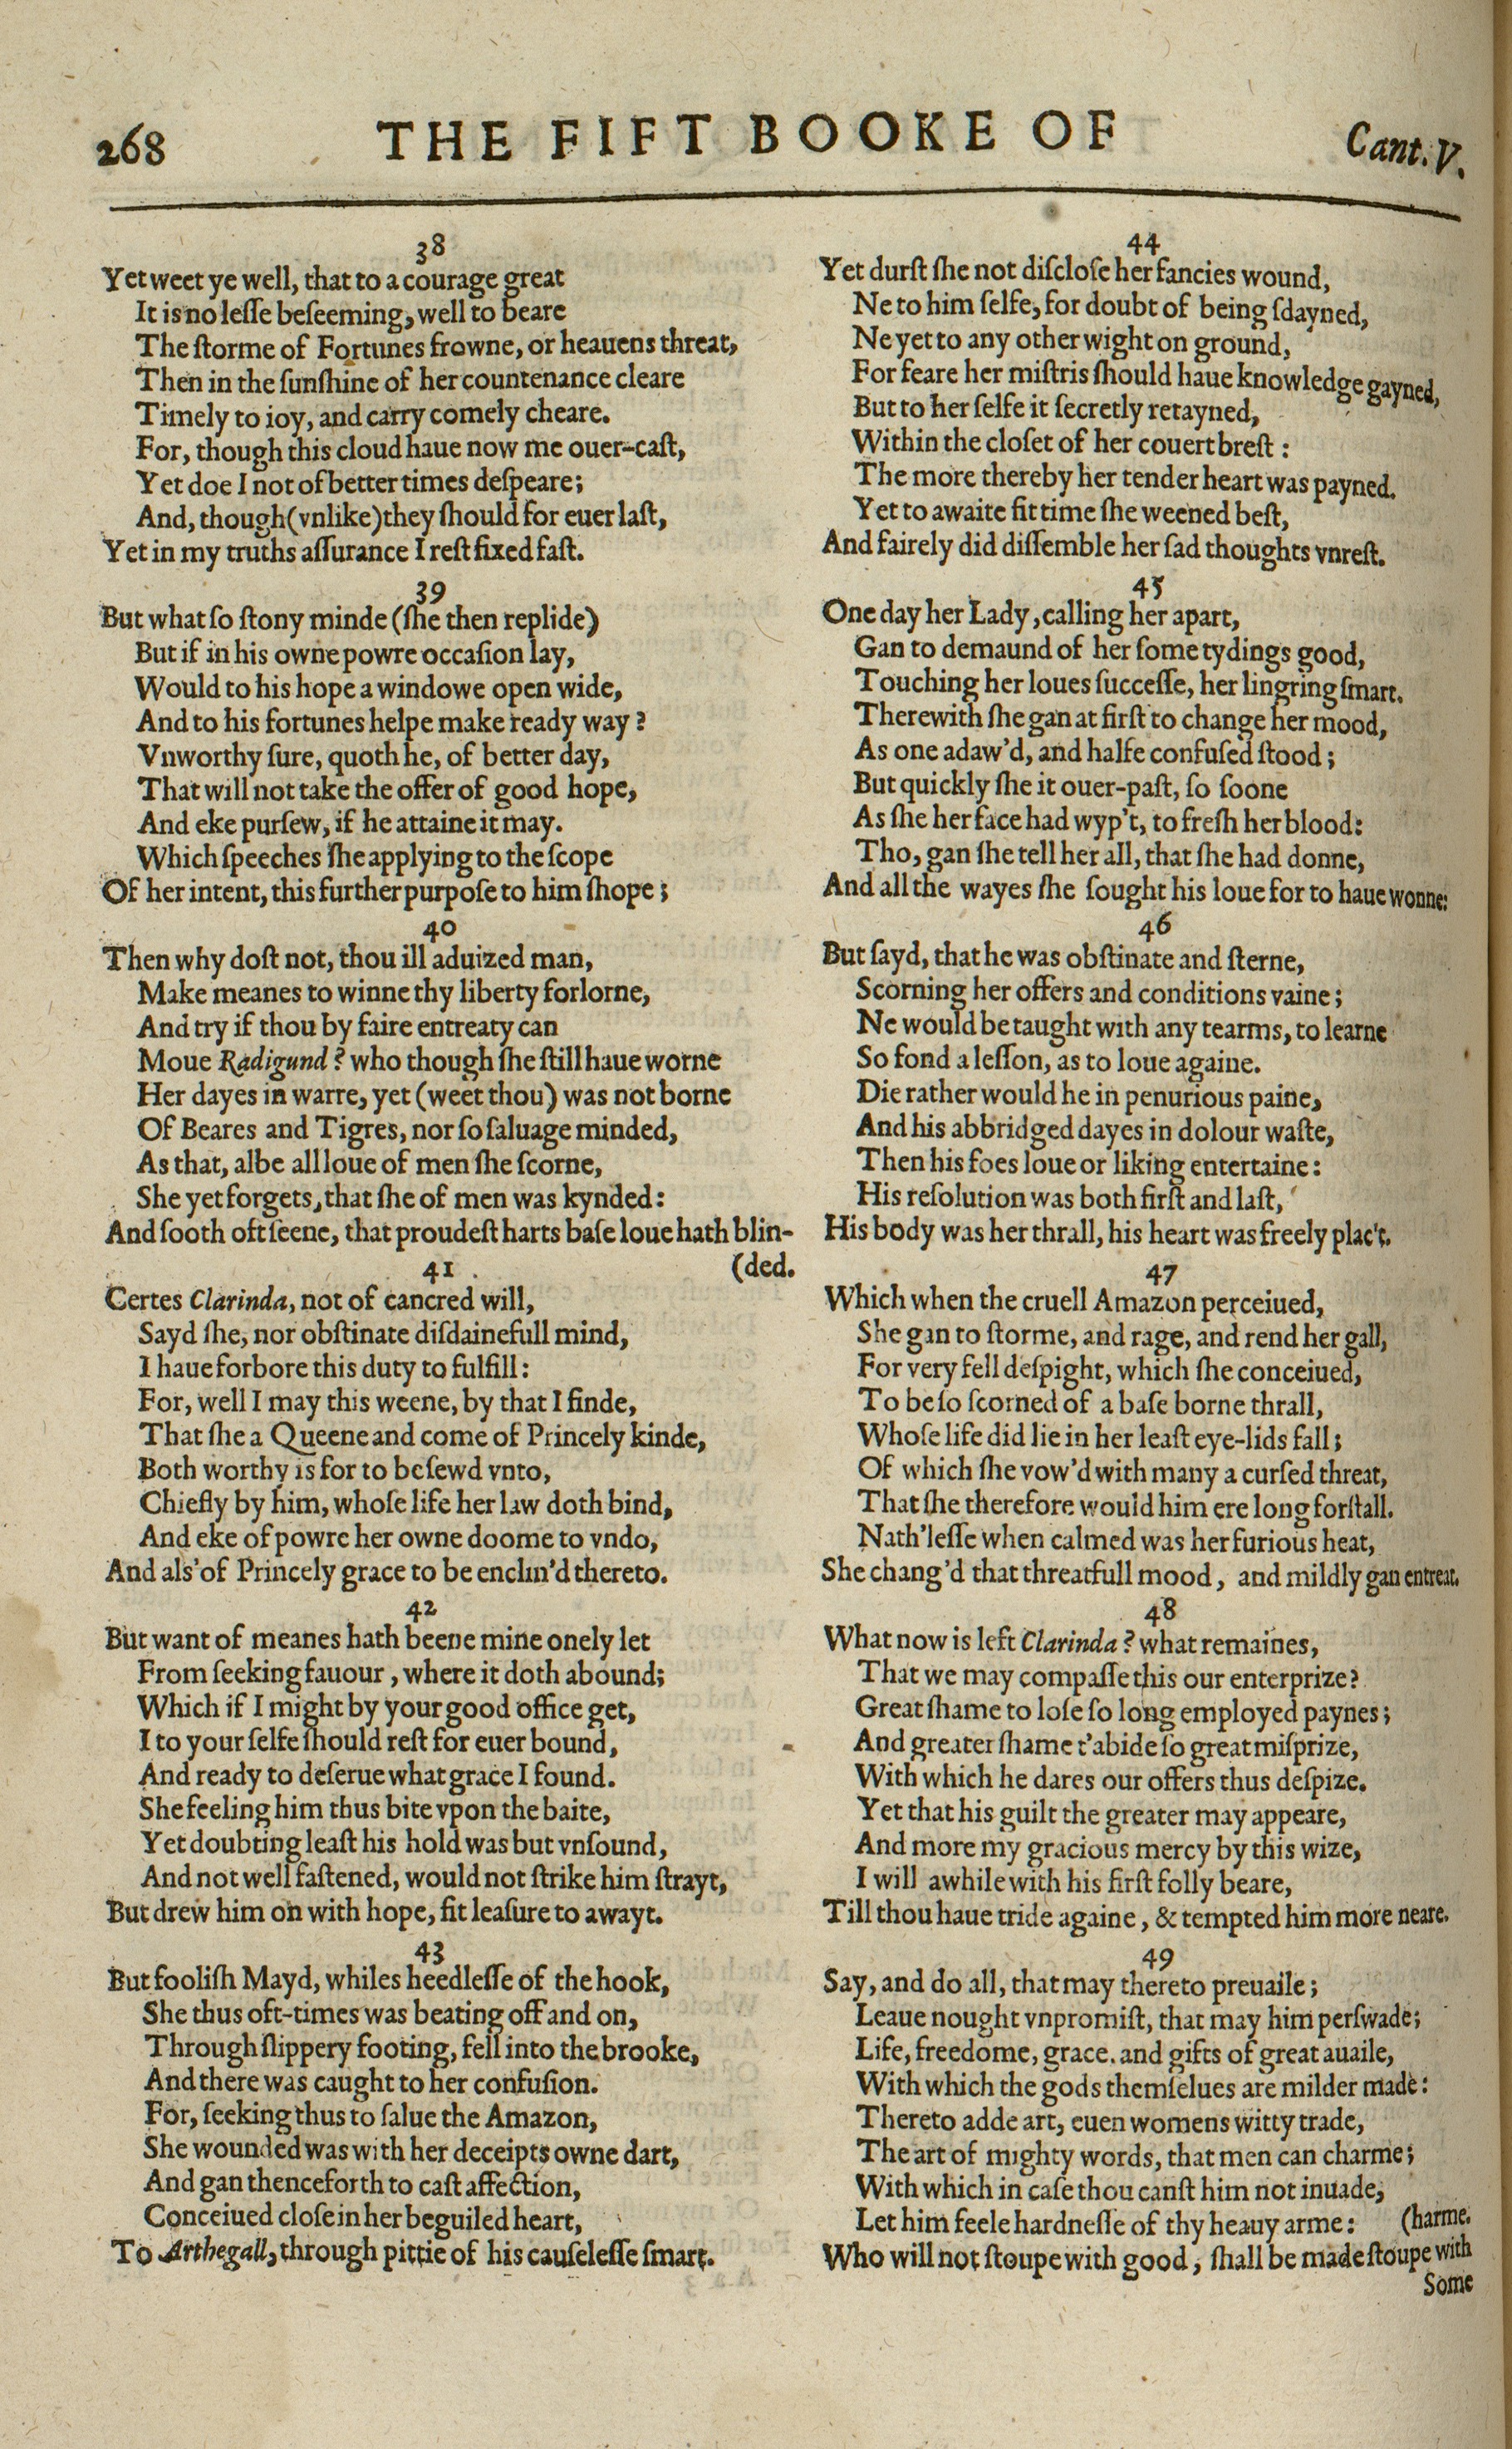 268
THE FIFT BOOKE OF
Cant. V.
38
Yet weet ye well, that to a courage great
It is no leſſe beſeeming, well to beare
The ſtorme of Fortunes frowne, or heauens threat,
Then in the ſunſhine of her countenance cleare
Timely to ioy, and carry comely cheare.
For, though this cloud haue now me ouer-caſt,
Yet doe I not of better times deſpeare;
And, though (vnlike) they ſhould for euer laſt,
Yet in my truths aſſurance I reſt fixed faſt.
39
But what ſo ſtony minde (ſhe then replide)
But if in his owne powre occaſion lay,
Would to his hope a windowe open wide,
And to his fortunes helpe make ready way?
Vnworthy ſure, quoth he, of better day,
That will not take the offer of good hope,
And eke purſew, if he attaine it may.
Which ſpeeches ſhe applying to the ſcope
Of her intent, this further purpoſe to him ſhope;
40
Then why doſt not, thou ill aduized man,
Make meanes to winne thy liberty forlorne,
And try if thou by faire entreaty can
Moue Radigund? who though ſhe ſtill haue worne
Her dayes in warre, yet (weet thou) was not borne
Of Beares and Tigres, nor ſo ſaluage minded,
As that, albe all loue of men ſhe ſcorne,
She yet forgets, that ſhe of men was kynded:
And ſooth oft ſeene, that proudeſt harts baſe loue hath blin-
(ded.
41
Certes Clarinda, not of cancred will,
Sayd ſhe, nor obſtinate diſdainefull mind,
I haue forbore this duty to fulfill:
For, well I may this weene, by that I finde,
That ſhe a Queene and come of Princely kinde,
Both worthy is for to be ſewd vnto,
Chiefly by him, whoſe life her law doth bind,
And eke of powre her owne doome to vndo,
And als' of Princely grace to be enclin'd thereto.
42
But want of meanes hath beene mine onely let
From ſeeking fauour, where it doth abound;
Which if I might by your good office get,
I to your ſelfe ſhould reſt for euer bound,
And ready to deſerue what grace I found.
She feeling him thus bite vpon the baite,
Yet doubting leaſt his hold was but vnſound,
And not well faſtened, would not ſtrike him ſtrayt,
But drew him on with hope, fit leaſure to awayt.
43
But fooliſh Mayd, whiles heedleſſe of the hook,
She thus oft-times was beating off and on,
Through ſlippery footing, fell into the brooke,
And there was caught to her confuſion.
For, ſeeking thus to ſalue the Amazon,
She wounded was with her deceipts owne dart,
And gan thenceforth to caſt affection,
Conceiued cloſe in her beguiled heart,
To Arthegall, through pittie of his cauſeleſſe ſmart.
44
Yet durſt ſhe not diſcloſe her fancies wound,
Ne to him ſelfe, for doubt of being ſdayned,
Ne yet to any other wight on ground,
For feare her miſtris ſhould haue knowledge gayned,
But to her ſelfe it ſecretly retayned,
Within the cloſet of her couert breſt:
The more thereby her tender heart was payned.
Yet to awaite fit time ſhe weened beſt,
And fairely did diſſemble her ſad thoughts vnreſt.
45
One day her Lady, calling her apart,
Gan to demaund of her ſome tydings good,
Touching her loues ſucceſſe, her lingring ſmart.
Therewith ſhe gan at firſt to change her mood,
As one adaw'd, and halfe confuſed ſtood;
But quickly ſhe it ouer-paſt, ſo ſoone
As ſhe her face had wyp't, to freſh her blood:
Tho, gan ſhe tell her all, that ſhe had donne,
And all the wayes ſhe ſought his loue for to haue wonne:
46
But ſayd, that he was obſtinate and ſterne,
Scorning her offers and conditions vaine;
Ne would be taught with any tearms, to learne
So fond a leſſon, as to loue againe.
Die rather would he in penurious paine,
And his abbridged dayes in dolour waſte,
Then his foes loue or liking entertaine:
His reſolution was both firſt and laſt,
His body was her thrall, his heart was freely plac't.
47
Which when the cruell Amazon perceiued,
She gan to ſtorme, and rage, and rend her gall,
For very fell deſpight, which ſhe conceiued,
To be ſo ſcorned of a baſe borne thrall,
Whoſe life did lie in her leaſt eye-lids fall;
Of which ſhe vow'd with many a curſed threat,
That ſhe therefore would him ere long forſtall.
Nath'leſſe when calmed was her furious heat,
She chang'd that threatfull mood, and mildly gan entreat.
48
What now is left Clarinda? what remaines,
That we may compaſſe this our enterprize?
Great ſhame to loſe ſo long employed paynes;
And greater ſhame t'abide ſo great miſprize,
With which he dares our offers thus deſpize.
Yet that his guilt the greater may appeare,
And more my gracious mercy by this wize,
I will awhile with his firſt folly beare,
Till thou haue tride againe, & tempted him more neare.
49
Say, and do all, that may thereto preuaile;
Leaue nought vnpromiſt, that may him perſwade;
Life, freedome, grace. and gifts of great auaile,
With which the gods themſelues are milder made:
Thereto adde art, euen womens witty trade,
The art of mighty words, that men can charme;
With which in caſe thou canſt him not inuade,
Let him feele hardneſſe of thy heauy arme:
(harme.
Who will not ſtoupe with good, ſhall be made ſtoupe with
Some